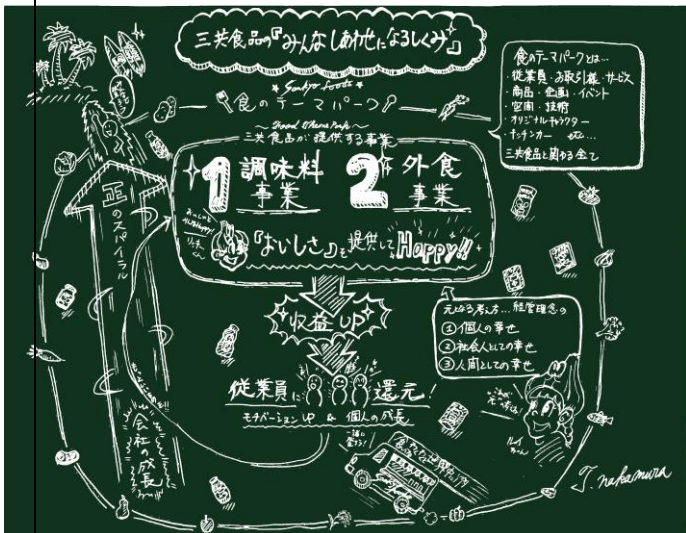 三共食品の『みんなしあわせになるしくみ』
Sankyo foods
食のテーマパーク
Food Theme Park
三共食品が提供する事業
1 調味料事業
2 外食事業
『おいしさ』を提供してHappy!!
収益UP
従業員に還元!
モチベーションUP & 個人の成長
正のスパイラル
会社の成長
食のテーマパークとは…
・従業員・お取引様・サービス
・商品・企画・イベント
・空間・技術
・オリジナルキャラクター
・キッチンカー etc…
三共食品と関わる全て
元となる考え方…経営理念の
①個人の幸せ
②社会人としての幸せ
③人間としての幸せ
ルイちゃん
T. nakamura